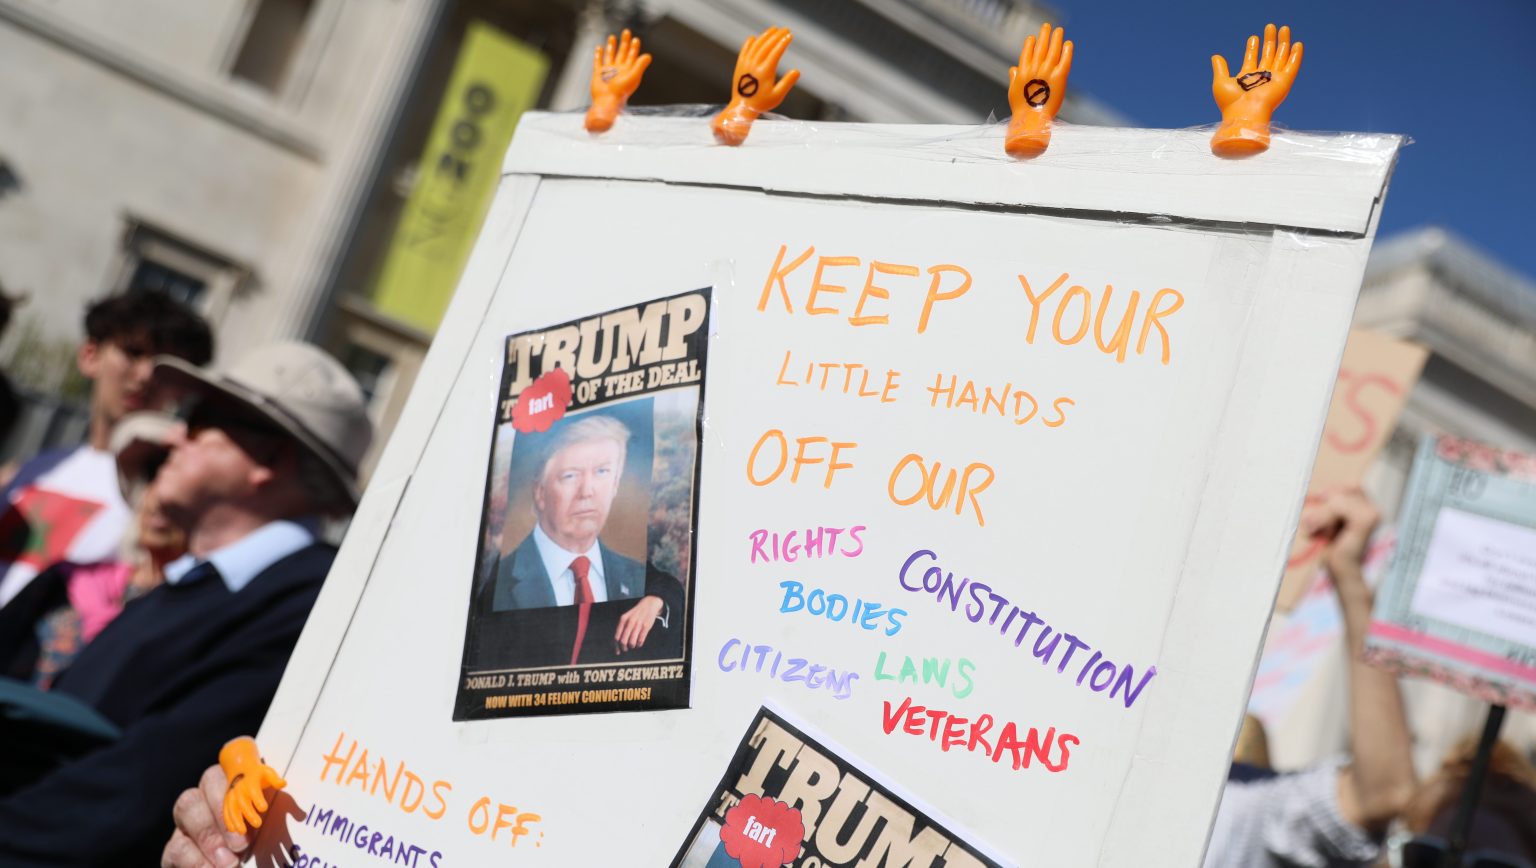 NG200
KEEP YOUR
LITTLE HANDS
OFF OUR
RIGHTS
CONSTITUTION
BODIES
CITIZENS
LAWS
VETERANS
TRUMP
fart
OF THE DEAL
DONALD J. TRUMP with TONY SCHWARTZ
NOW WITH 34 FELONY CONVICTIONS!
HANDS OFF:
IMMIGRANTS
TRUMP
fart